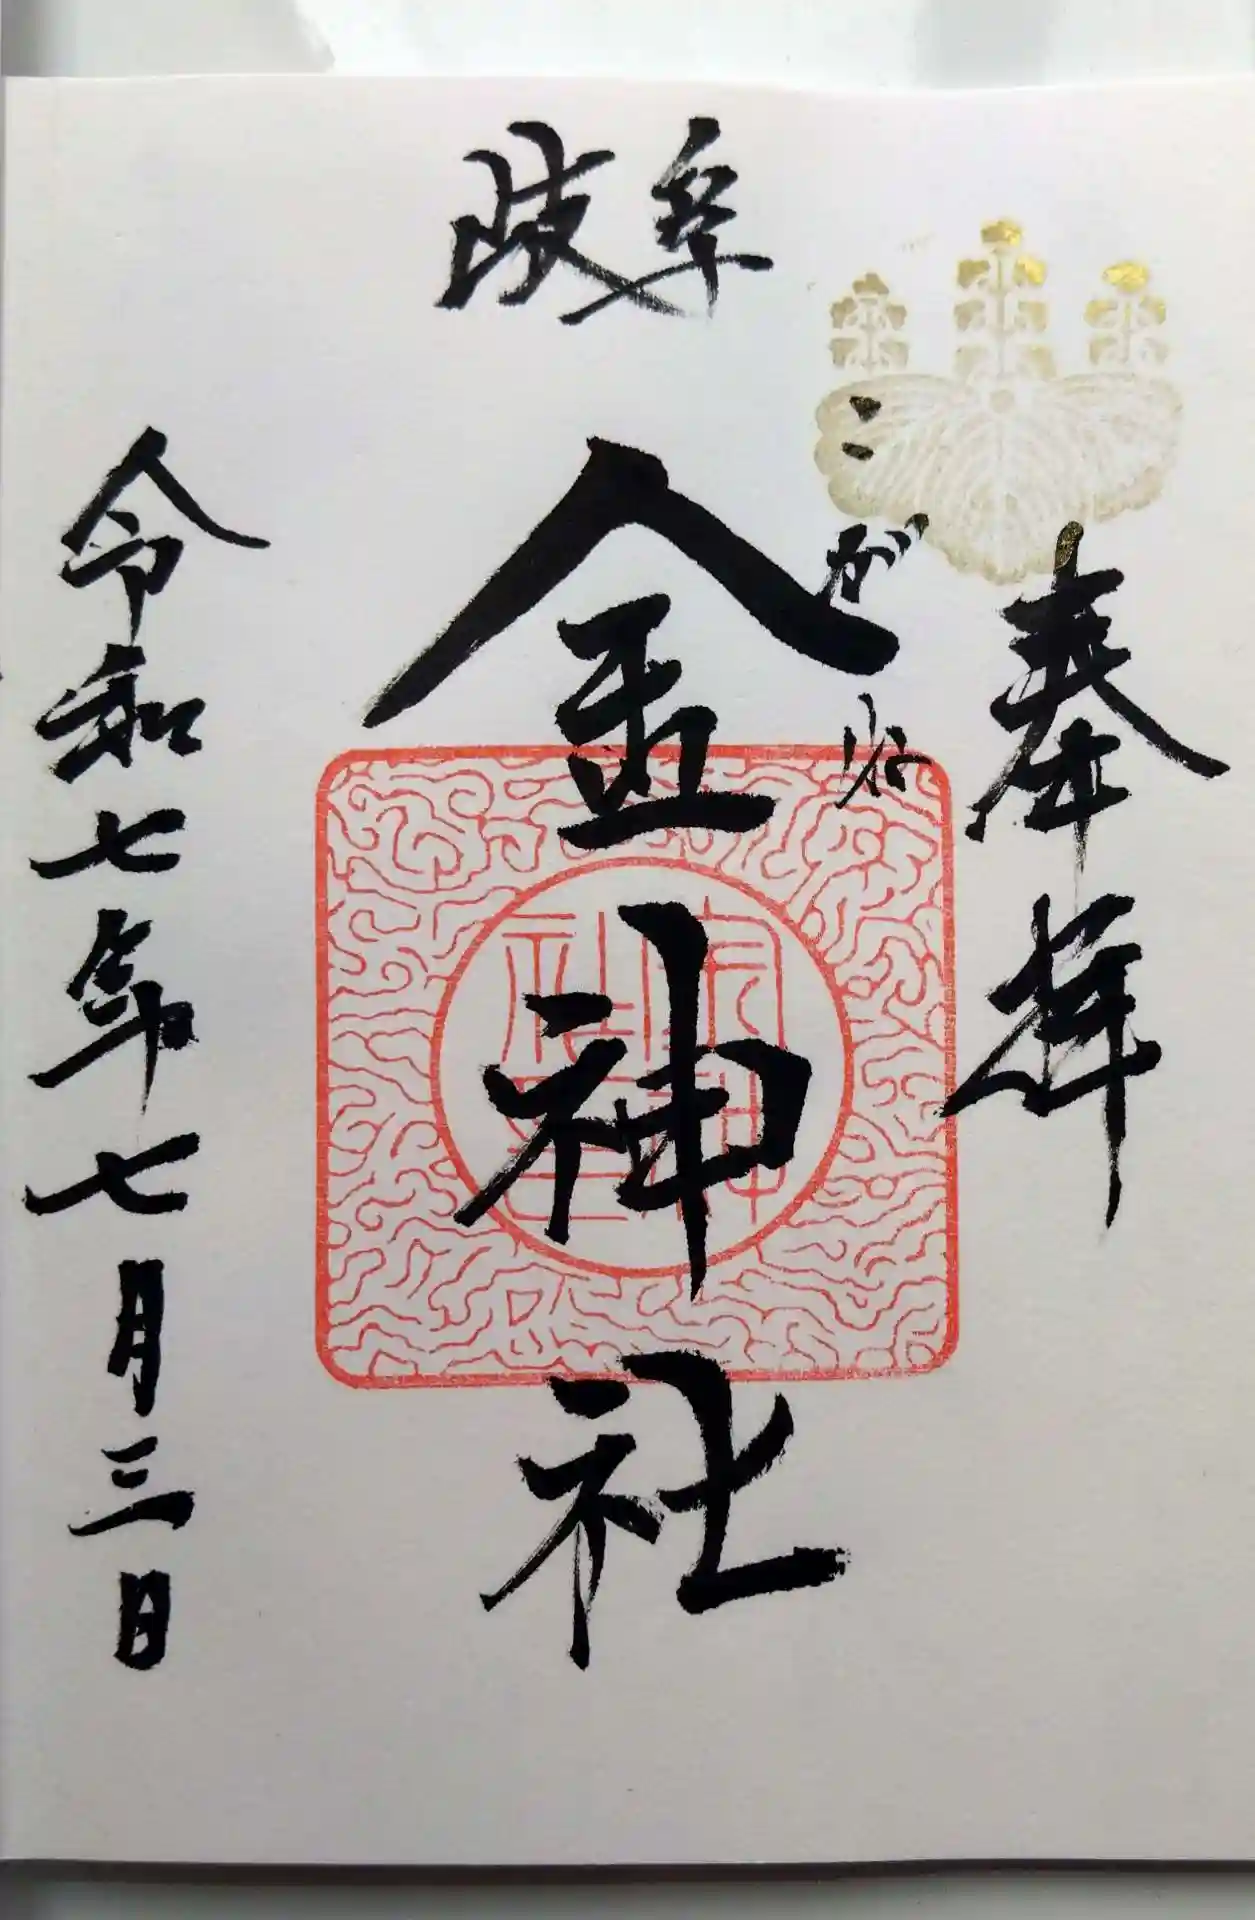 岐阜
奉拝
こがね
金神社
令和七年七月三日